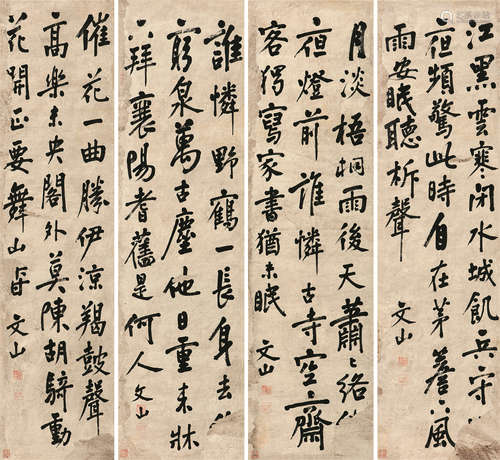 江黑雲寒閉水城飢兵守
亱頻驚此時自在茅簷下風
雨安眠聽柝聲
文山
月淡梧桐雨後天蕭〻絡
亱燈前誰憐古寺空齋
客獨寫家書猶未眠
文山
誰憐野鶴一長身去
窮泉萬古塵他日重來牀
下拜襄陽耆舊是何人 文山
催花一曲勝伊涼羯鼓聲
高樂未央閣外莫陳胡騎動
花開正要舞山香 文山